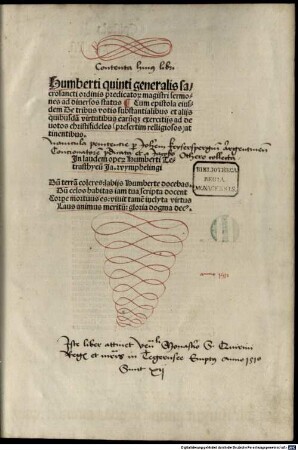 Contenta huius libri
Humberti quinti generalis sa-
crosancti ordinis predicatoꝝ magistri sermo-
nes ad diuersos status Cum epistola eius-
dem De tribus votis substantialibus et alijs
quibusdā virtutibus earūqꝫ exercitijs ad de-
uotos christifideles presertim religiosos at-
tinentibus.
penitencie per Johem
et a Jacobo Othero collecta
In laudem opeꝝ Humberti Te-
trastichon Ja. wymphelingi
Dū terrā coleres labijs Humberte docebas
Dū celos habitas iam tua scripta docent
Corpe mortuus es: viuit tamē inclyta virtus
Laus animus meritū: gloria dogma decꝰ.
BIBLIOTHECA
REGIA
MONACENSIS.
Iste liber attinet Monasterio S. Quirini
Regis et mris in Tegernsee Emptus Anno 1510
Sunt XII